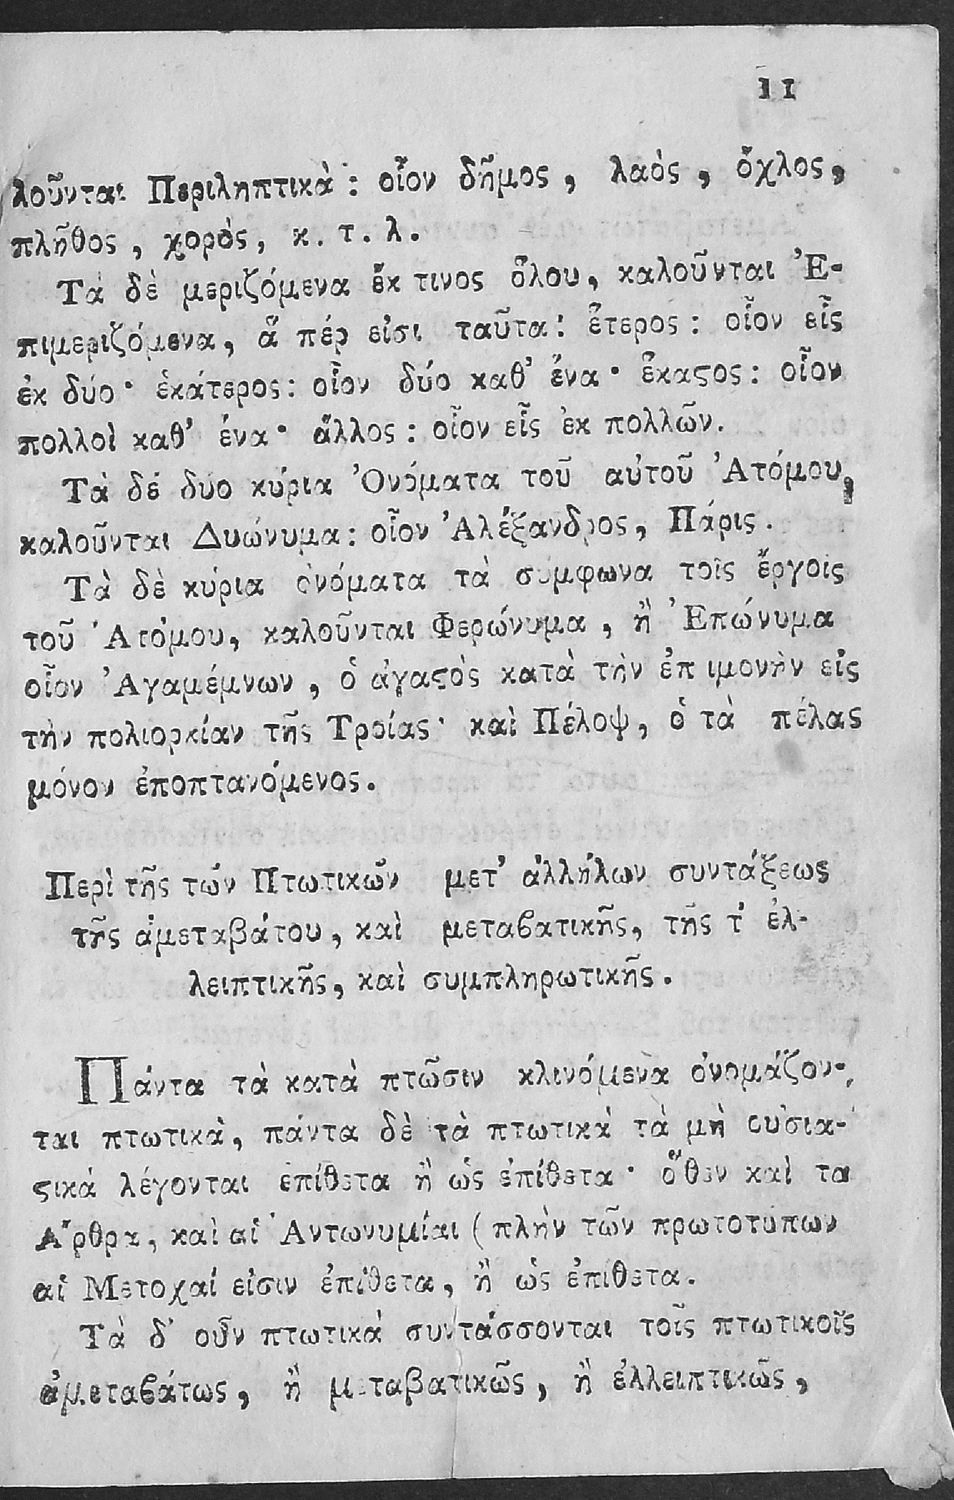 11
λοῦνται Περιληπτικὰ : οἷον δῆμος , λαὸς , ὄχλος ,
πλῆθος , χορὸς , κ . τ . λ .
Τὰ δὲ μεριζόμενα ἔκ τινος ὅλου , καλοῦνται Ἐ-
πιμεριζόμενα , ἅ πέρ εἰσι ταῦτα : ἕτερος : οἷον εἷς
ἐκ δύο · ἑκάτερος : οἷον δύο καθ’ ἕνα · ἕκαϛος : οἷον
πολλοὶ καθ’ ἕνα · ἄλλος : οἷον εἷς ἐκ πολλῶν .
Τὰ δέ δύο κύρια Ὀνόματα τοῦ αὐτοῦ Ἀτόμου ,
καλοῦνται Δυώνυμα : οἷον Ἀλέξανδρος , Πάρις .
Τὰ δὲ κύρια ὀνόματα τὰ σύμφωνα τοῖς ἔργοις
τοῦ Ἀτόμου , καλοῦνται Φερώνυμα , ἢ Ἐπώνυμα
οἷον Ἀγαμέμνων , ὁ ἀγαϛὸς κατὰ τὴν ἐπιμονὴν εἰς
τὴν πολιορκίαν τῆς Τροίας · καὶ Πέλοψ , ὁ τὰ πέλας
μόνον ἐποπτανόμενος .
Περὶ τῆς τῶν Πτωτικῶν μετ’ ἀλλήλων συντάξεως
τῆς ἀμεταβάτου , καὶ μεταϐατικῆς , τῆς τ’ ἐλ-
λειπτικῆς , καὶ συμπληρωτικῆς .
Πάντα τὰ κατὰ πτῶσιν κλινόμενα ὀνομάζον-
ται πτωτικὰ , πάντα δὲ τὰ πτωτικὰ τὰ μὴ οὐσια-
ϛικά λέγονται ἐπίθετα ἢ ὡς ἐπίθετα · ὅθεν καὶ τα
Ἄρθρα , καὶ αἱ Ἀντωνυμίαι ( πλὴν τῶν πρωτοτύπων
αἱ Μετοχαί εἰσιν ἐπίθετα , ἢ ὡς ἐπίθετα .
Τὰ δ’ οὖν πτωτικά συντάσσονται τοῖς πτωτικοῖς
ἀμεταϐάτως , ἢ μεταβατικῶς , ἢ ἐλλειπτικῶς ,